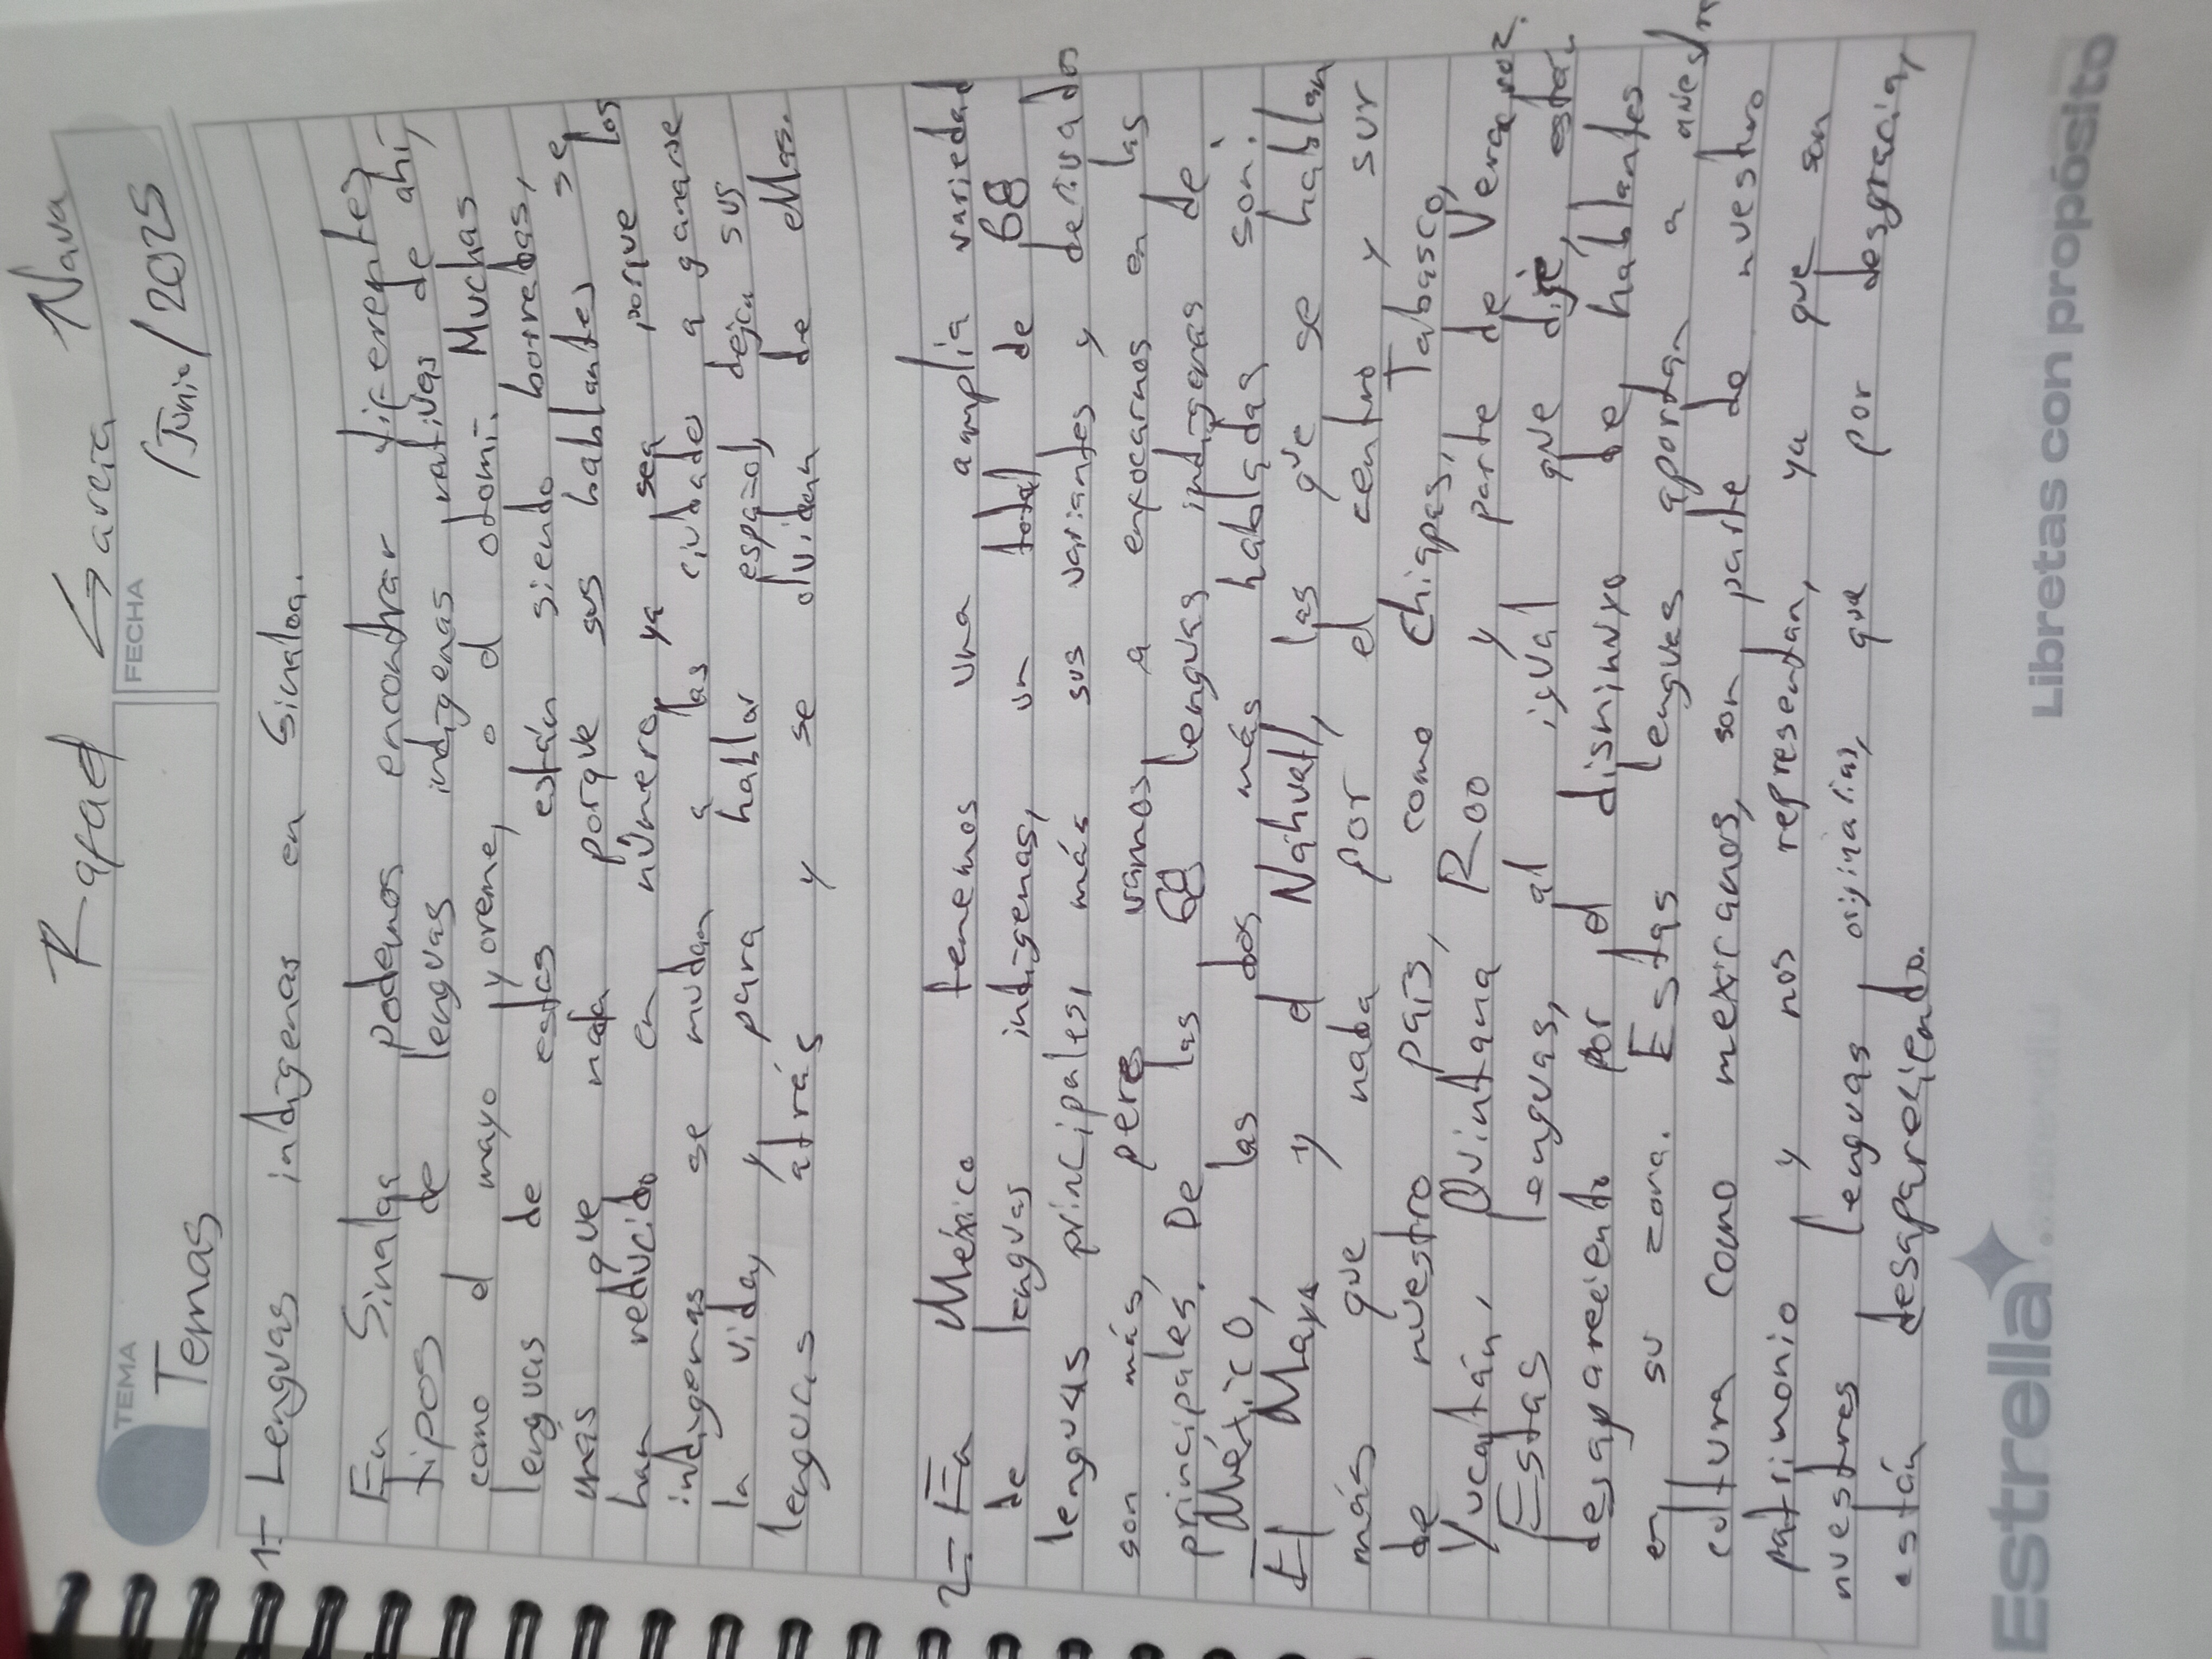 Rafael Garcia Nava
TEMA
Temas
FECHA
/Junio/2025
1- Lenguas indigenas en Sinaloa.
En Sinaloa podemos encontrar diferentes
tipos de lenguas indigenas nativas de ahí,
como el mayo yoreme, o el otomi. Muchas
lenguas de estas están siendo borradas,
mas que nada porque sus hablantes se
han reducido en número, ya sea porque los
indigenas se mudan a las ciudades a ganarse
la vida, y para hablar español, dejan sus
lenguas atrás y se olvidan de ellas.
2- En México tenemos una amplia variedad
de lenguas indigenas, un total de 68
lenguas principales, más sus variantes y derivados
son más, pero vamos a enfocarnos en las
principales. De las 68 lenguas indigenas de
México, las dos más habladas son:
El Maya y el Náhuatl, las que se hablan
más que nada por el centro y sur
de nuestro país, como Chiapas, Tabasco,
Yucatán, Quintana Roo y parte de Veracruz.
Estas lenguas, al igual que dije, están
desapareciendo por el disninuyo de hablantes
en su zona. Estas lenguas aportan a nuestra
cultura como mexicanos, son parte de nuestro
patrimonio y nos representan, ya que son
nuestras lenguas originarias, que por desgracia,
están desapareciendo.
Estrella
Libretas con propósito